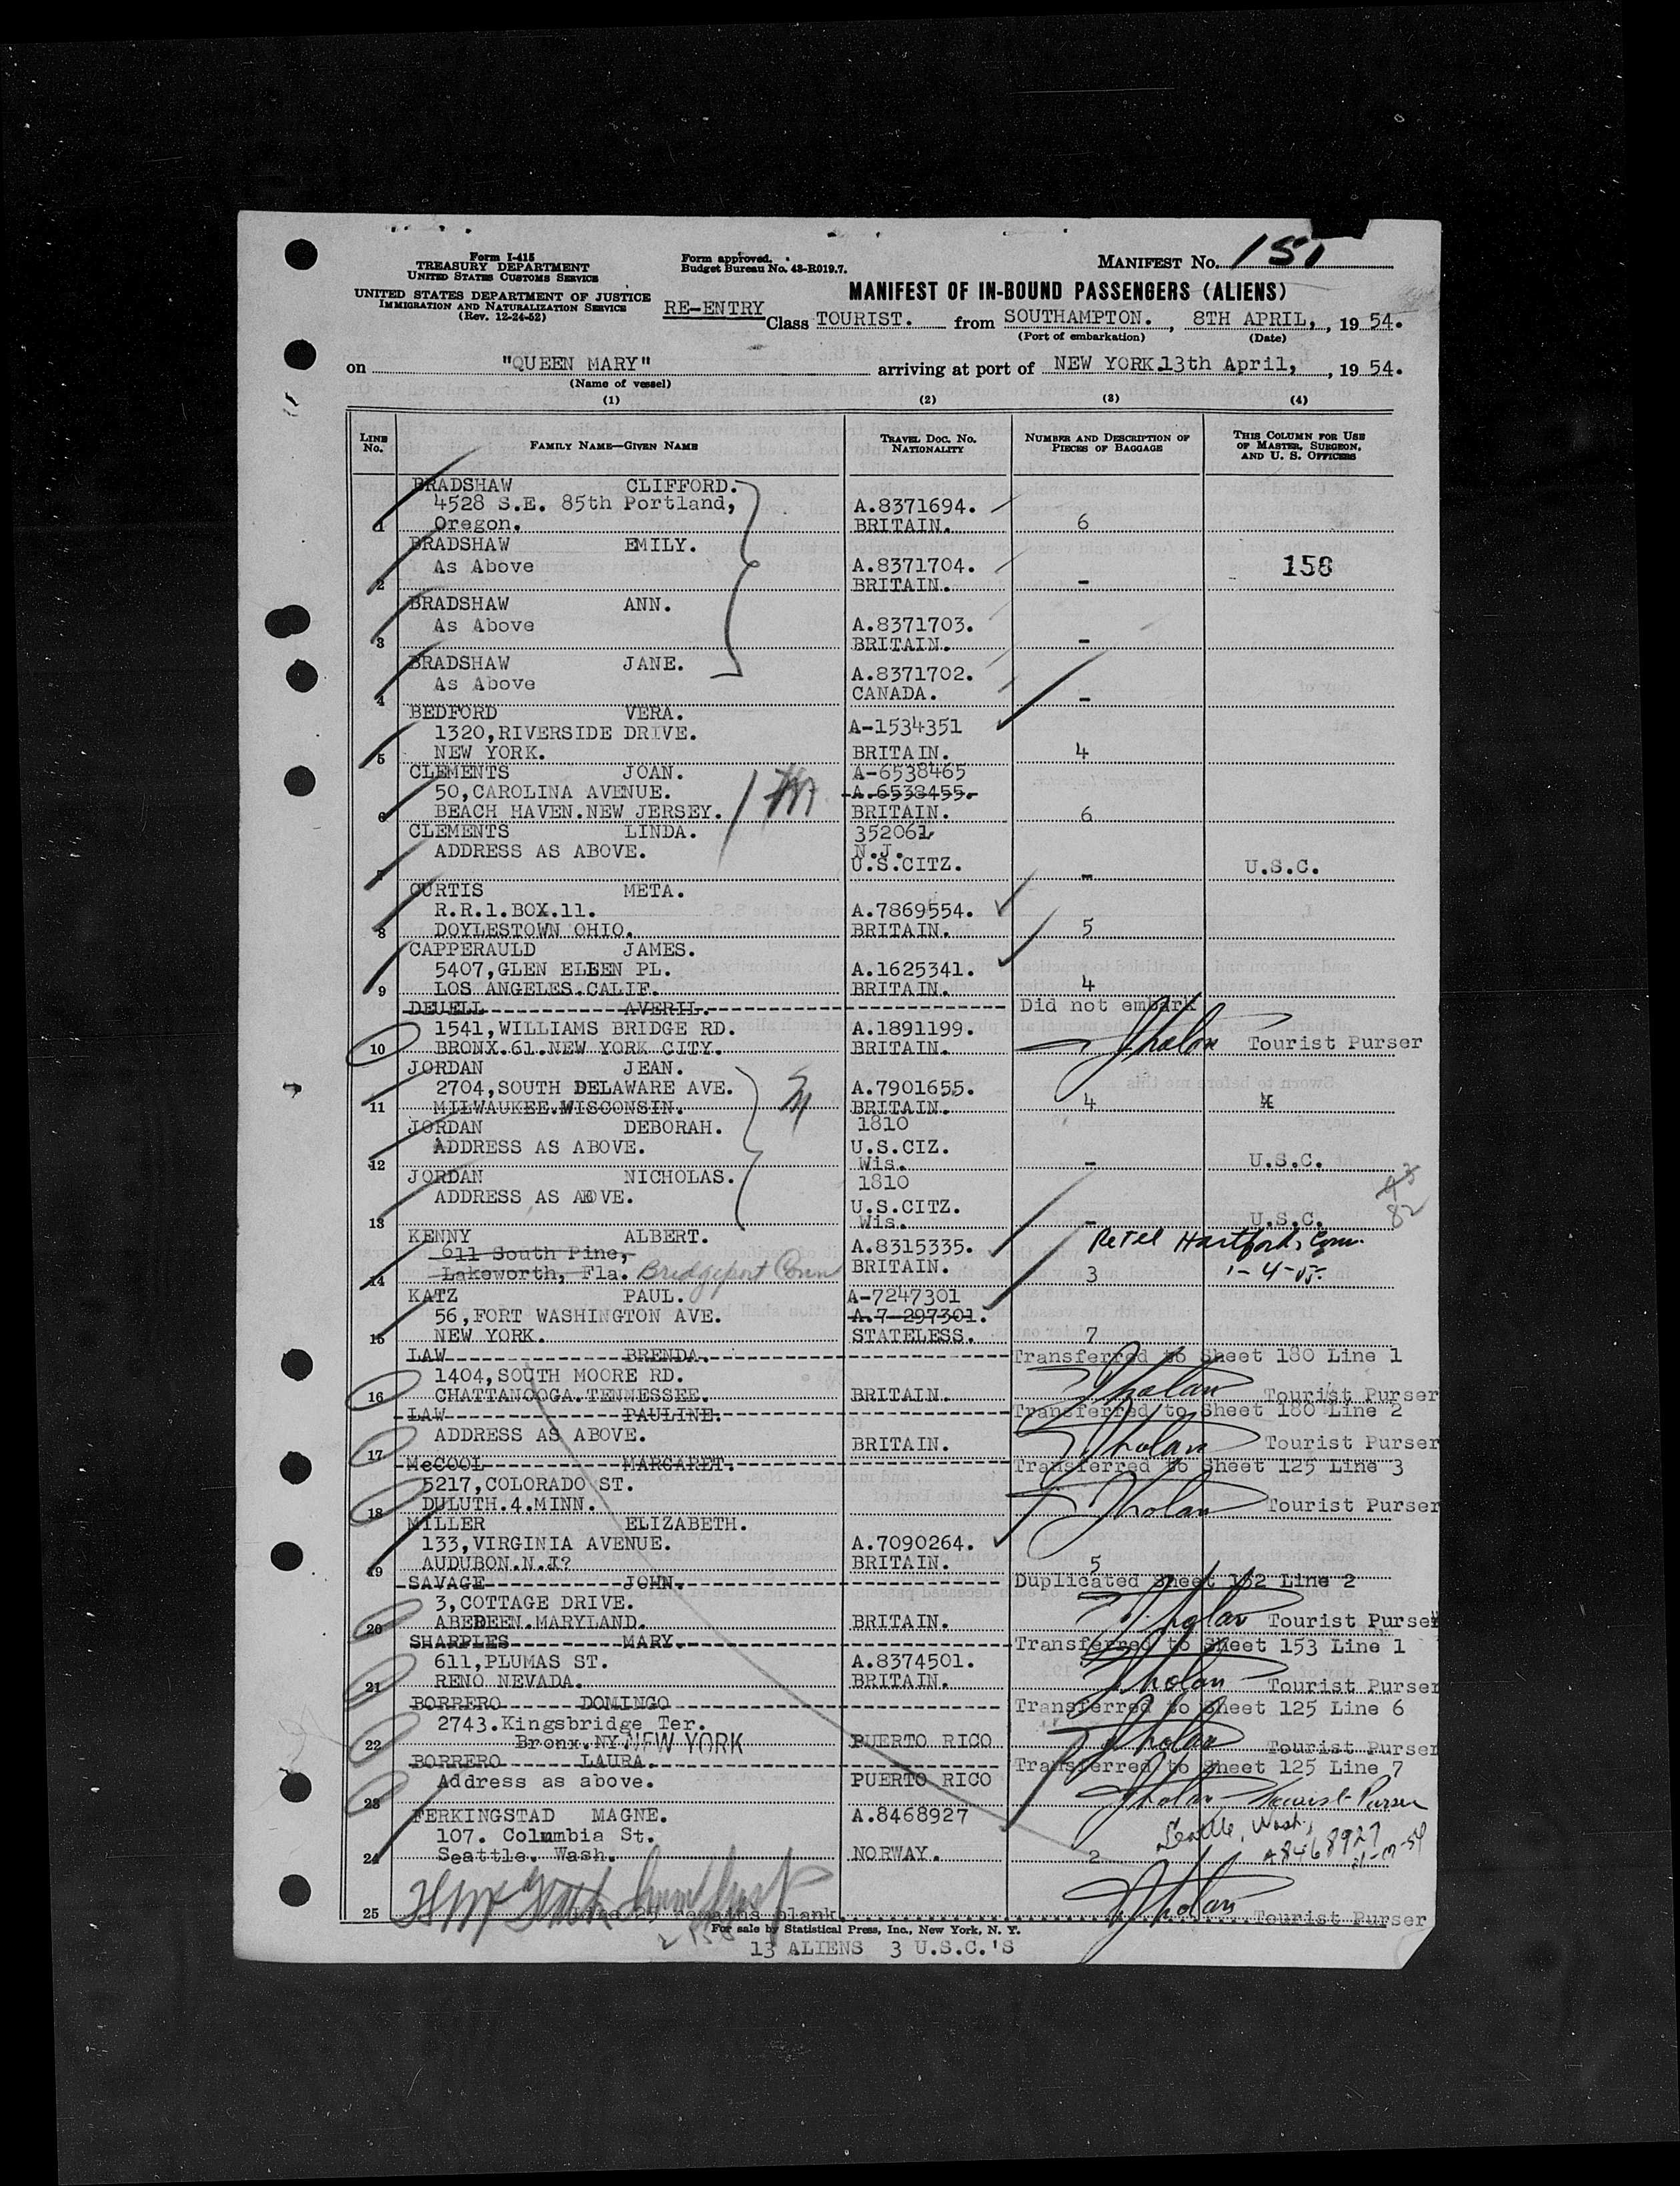 Form I-415
TREASURY DEPARTMENT
UNITED STATES CUSTOMS SERVICE
UNITED STATES DEPARTMENT OF JUSTICE
IMMIGRATION AND NATURALIZATION SERVICE
(Rev. 12-24-52)
Form approved.
Budget Bureau No. 43-R019.7.
MANIFEST No. 151
MANIFEST OF IN-BOUND PASSENGERS (ALIENS)
RE-ENTRY Class TOURIST. from SOUTHAMPTON. , 8TH APRIL, , 19 54.
(Port of embarkation) (Date)
on "QUEEN MARY" arriving at port of NEW YORK. 13th April, , 19 54.
(Name of vessel)
(1) (2) (3) (4)
LINE No. FAMILY NAME—GIVEN NAME TRAVEL DOC. No. NATIONALITY NUMBER AND DESCRIPTION OF PIECES OF BAGGAGE THIS COLUMN FOR USE OF MASTER, SURGEON, AND U. S. OFFICERS
BRADSHAW CLIFFORD.
4528 S.E. 85th Portland, A.8371694.
1 Oregon. BRITAIN. 6
BRADSHAW EMILY.
As Above A.8371704. 158
2 BRITAIN. -
BRADSHAW ANN.
As Above A.8371703.
3 BRITAIN. -
BRADSHAW JANE. A.8371702.
As Above CANADA.
4 -
BEDFORD VERA.
1320,RIVERSIDE DRIVE. A-1534351
5 NEW YORK. BRITAIN. 4
CLEMENTS JOAN. A-6538465
50,CAROLINA AVENUE. A.6538455.
6 BEACH HAVEN.NEW JERSEY. BRITAIN. 6
CLEMENTS LINDA. 352061
ADDRESS AS ABOVE. N.J.
7 U.S.CITZ. - U.S.C.
CURTIS META.
R.R.1.BOX.11. A.7869554.
8 DOYLESTOWN OHIO. BRITAIN. 5
CAPPERAULD JAMES.
5407,GLEN ELEEN PL. A.1625341.
9 LOS ANGELES.CALIF. BRITAIN. 4
DEUELL AVERIL. Did not embark
1541,WILLIAMS BRIDGE RD. A.1891199.
10 BRONX.61.NEW YORK CITY. BRITAIN. Tourist Purser
JORDAN JEAN.
2704,SOUTH DELAWARE AVE. A.7901655.
11 MILWAUKEE.WISCONSIN. BRITAIN. 4
JORDAN DEBORAH. 1810
ADDRESS AS ABOVE. U.S.CIZ.
12 Wis. - U.S.C.
JORDAN NICHOLAS. 1810
ADDRESS AS ABOVE. U.S.CITZ.
13 Wis. - U.S.C.
82
KENNY ALBERT. A.8315335. Retel Hartford, Conn.
611 South Pine,
14 Lakeworth, Fla. Bridgeport Conn BRITAIN. 3 1-4-55.
KATZ PAUL. A-7247301
56,FORT WASHINGTON AVE. A.7-297301.
15 NEW YORK. STATELESS. 7
LAW BRENDA. Transferred to Sheet 180 Line 1
1404,SOUTH MOORE RD.
16 CHATTANOOGA.TENNESSEE. BRITAIN. Tourist Purser
LAW PAULINE. Transferred to Sheet 180 Line 2
ADDRESS AS ABOVE.
17 BRITAIN. Tourist Purser
McCOOL MARGARET. Transferred to Sheet 125 Line 3
5217,COLORADO ST.
18 DULUTH.4.MINN. Tourist Purser
MILLER ELIZABETH.
133,VIRGINIA AVENUE. A.7090264.
19 AUDUBON.N.J? BRITAIN. 5
SAVAGE JOHN. Duplicated Sheet 152 Line 2
3,COTTAGE DRIVE.
20 ABEDEEN.MARYLAND. BRITAIN. Tourist Purser
SHARPLES MARY. Transferred to Sheet 153 Line 1
611,PLUMAS ST. A.8374501.
21 RENO NEVADA. BRITAIN. Tourist Purser
BORRERO DOMINGO Transferred to Sheet 125 Line 6
2743.Kingsbridge Ter.
22 Bronx.NY. NEW YORK PUERTO RICO Tourist Purser
BORRERO LAURA. Transferred to Sheet 125 Line 7
Address as above. PUERTO RICO
23 Tourist Purser
FERKINGSTAD MAGNE. A.8468927
107. Columbia St. Seattle, Wash.,
24 Seattle. Wash. NORWAY. 2 A8468927
25 Line 25 remains blank Tourist Purser
For sale by Statistical Press, Inc., New York, N. Y.
13 ALIENS 3 U.S.C.'S